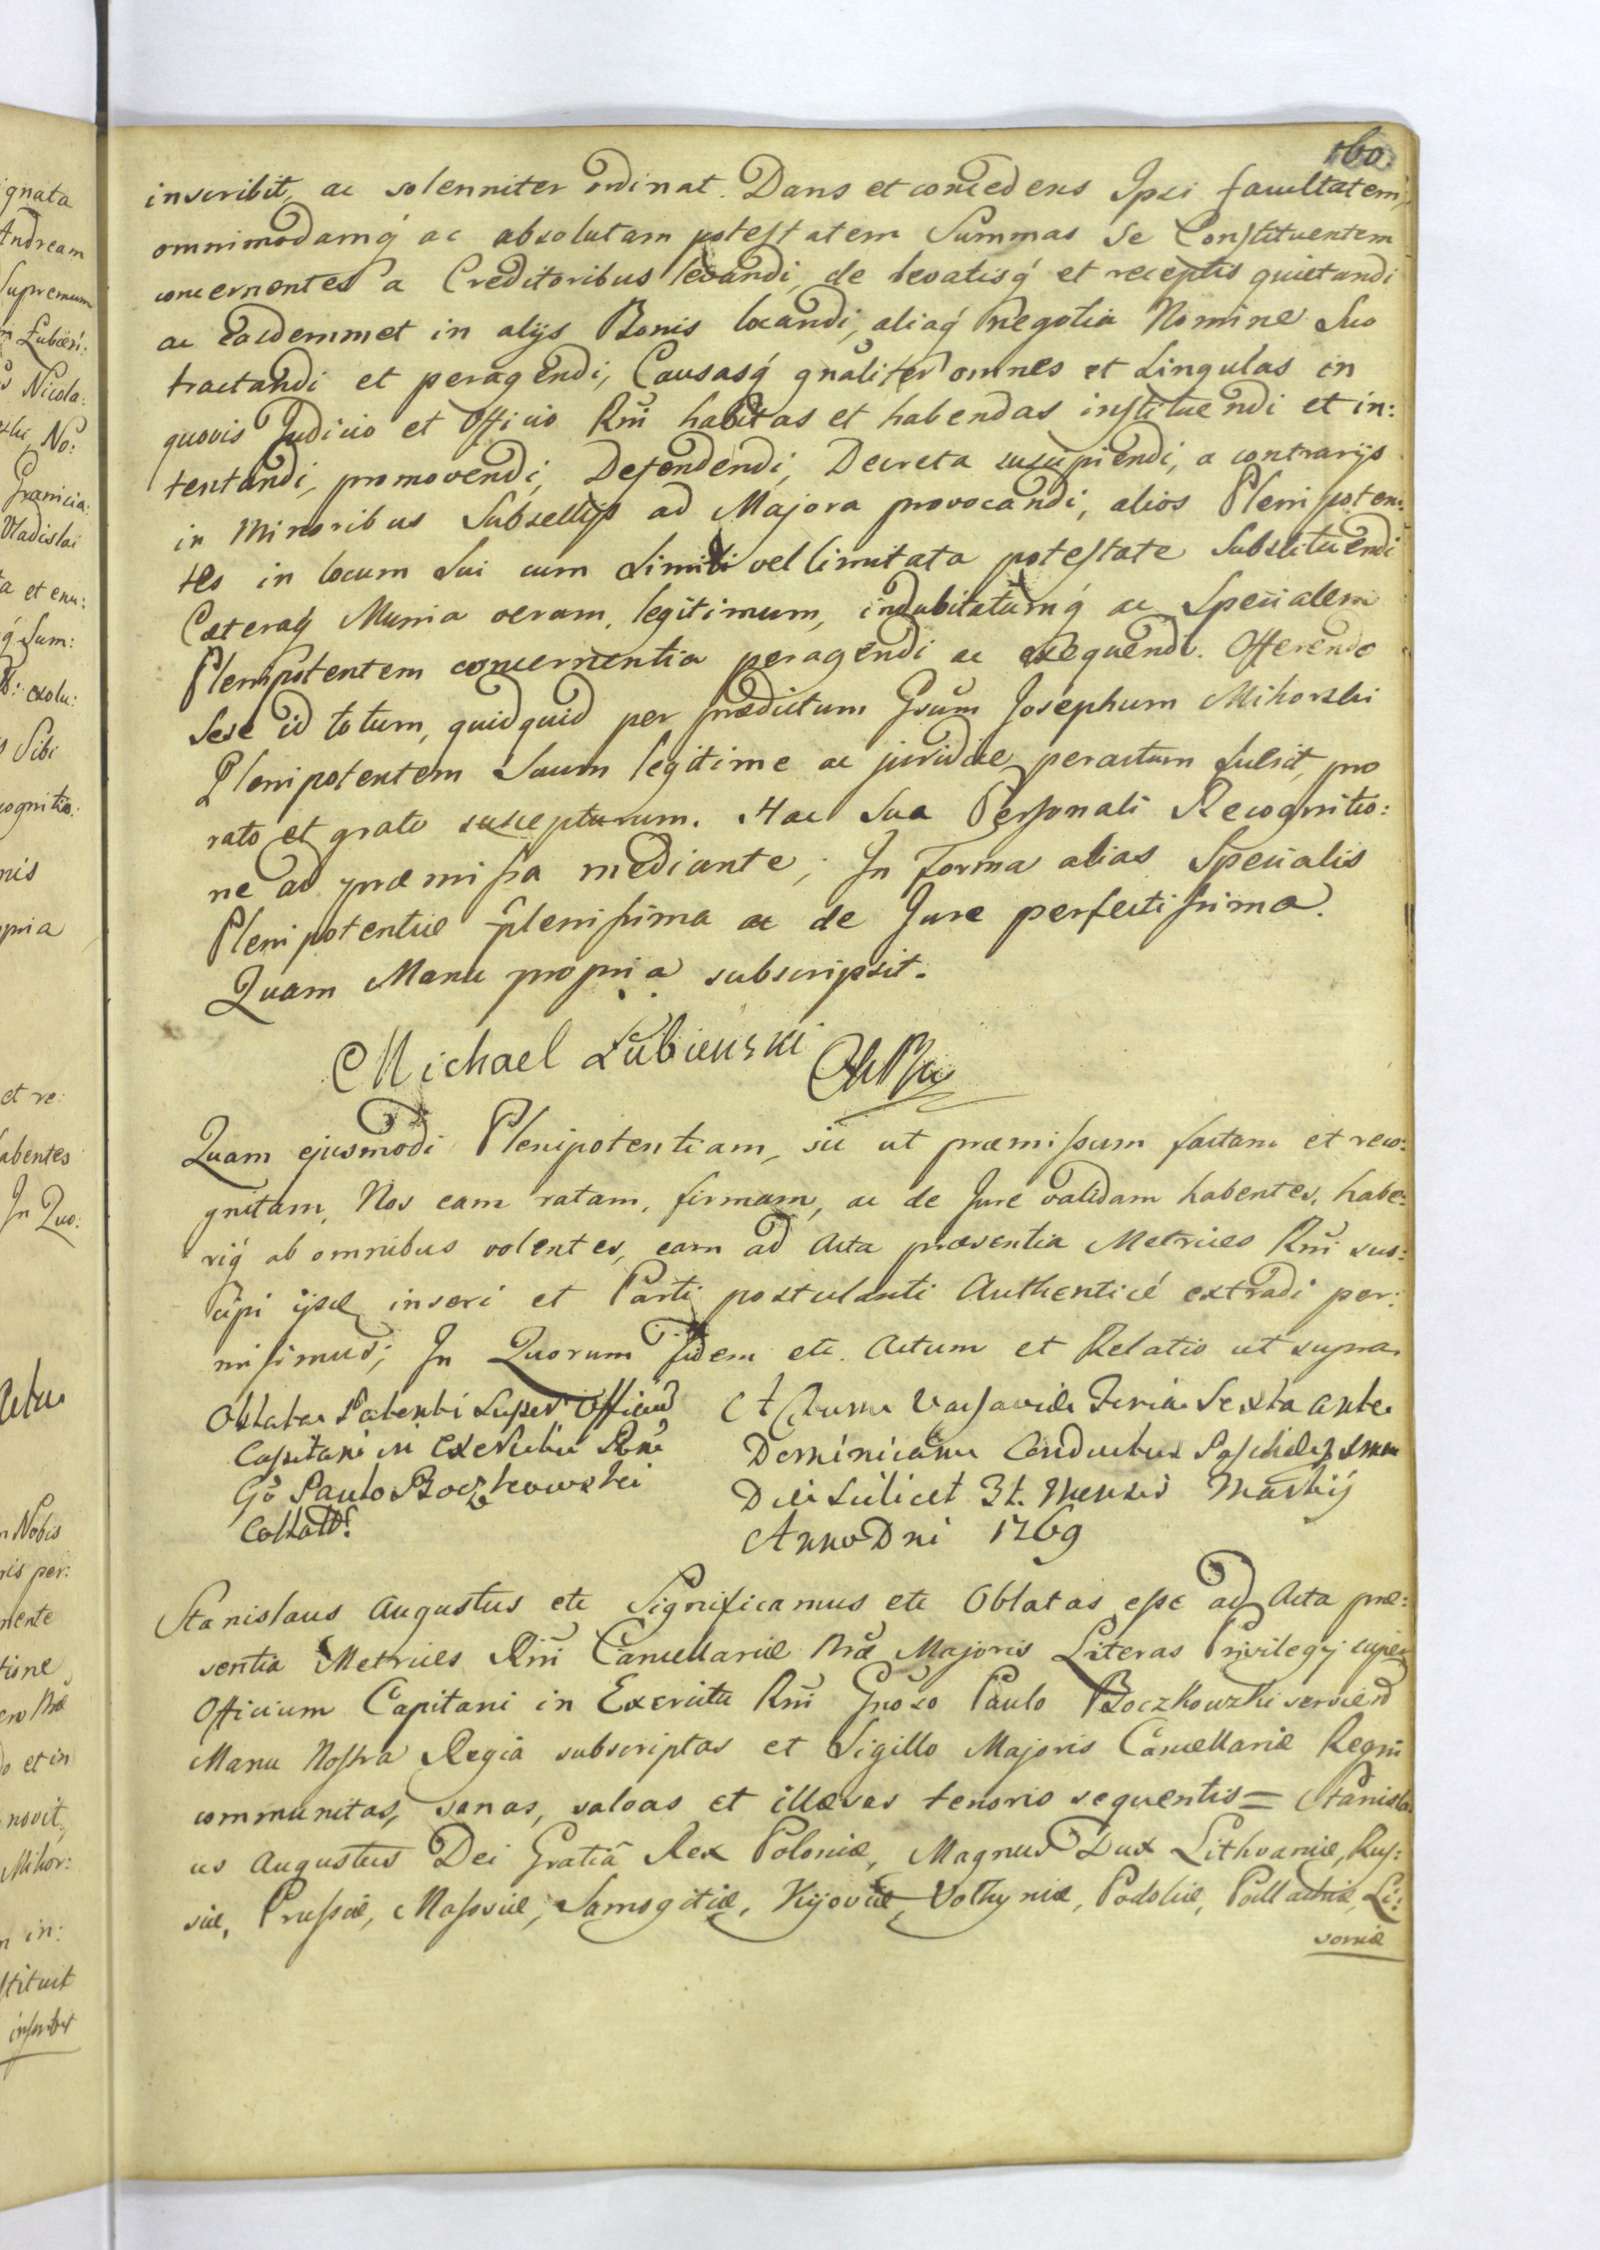 160
inscribit, ac solenniter ordinat. Dans et concedens Ipsi facultatem,
omnimodamq́ ac absolutam potestatem Summas Se Constituentem
concernentes a Creditoribus levandi, de levatisq́ et receptis quietandi
ac easdemmet in alijs Bonis locandi, aliaq́ Negotia Nomine Suo
tractandi et peragendi, Causasq́ gnãliter omnes et Singulas in
quovis Judicio et Officio Rñi habitas et habendas instituendi et in:
tentandi, promovendi, Defendendi, Decreta suscipiendi, a contrarijs
in Minoribus Subsellijs ad Majora provocandi, alios Plenipoten:
tes in locum Sui cum Simili vel limitata potestate Substituendi
Cæteraq́ Munia veram, legitimum, indubitatumq́ ac Specialem
Plenipotentem concernentia peragendi ac exequendi. Offerendo
Sese id totum, quidquid per prædictum Gsum Josephum Mihorski
Plenipotentem Suum legitime ac juridice peractum fuerit, pro
rato et grato suscepturum. Hac Sua Personali Recognitio:
ne ad præmissa mediante; In Forma alias Specialis
Plenipotentiæ plenissima ac de Jure perfectissima.
Quam Manu propria subscripsit.
Michael Łubieński
Quam ejusmodi Plenipotentiam, sic ut præmissum factam et reco:
gnitam, Nos eam ratam, firmam, ac de Jure validam habentes, habe:
riq́ ab omnibus volentes, eam ad Acta præsentia Metrices Rñi sus:
cipi ijsq́ inseri et Parti postulanti Authenticé extradi per:
misimus; In Quorum Fidem etc. Actum et Relatio ut supra.
Oblata Patenti Super Officiũ
Capitani in Exercitu Rñi
Gõ Paulo Boczkowski
Collatt.
Actum Varsaviæ Feria Sexta ante
Dominicam Conductus Paschalis
Die Scilicet 31. Mensis Martij
Anno Dni 1769
Stanislaus Augustus etc Significamus etc Oblatas esse ad Acta præ:
sentia Metrices Rñi Cancellariæ Nræ Majoris Literas Privilegij super
Officium Capitani in Exercitu Rñi Gnoso Paulo Boczkowski serviend
Manu Nostra Regiâ subscriptas et Sigillo Majoris Cancellariæ Regni
communitas, sanas, salvas et illæsas tenoris sequentis = Stanisla:
us Augustus Dei Gratiâ Rex Poloniæ, Magnus Dux Lithvaniæ, Rus:
siæ, Prussiæ, Masoviæ, Samogitiæ, Kijoviæ, Volhyniæ, Podoliæ, Podlachiæ, Li:
voniæ